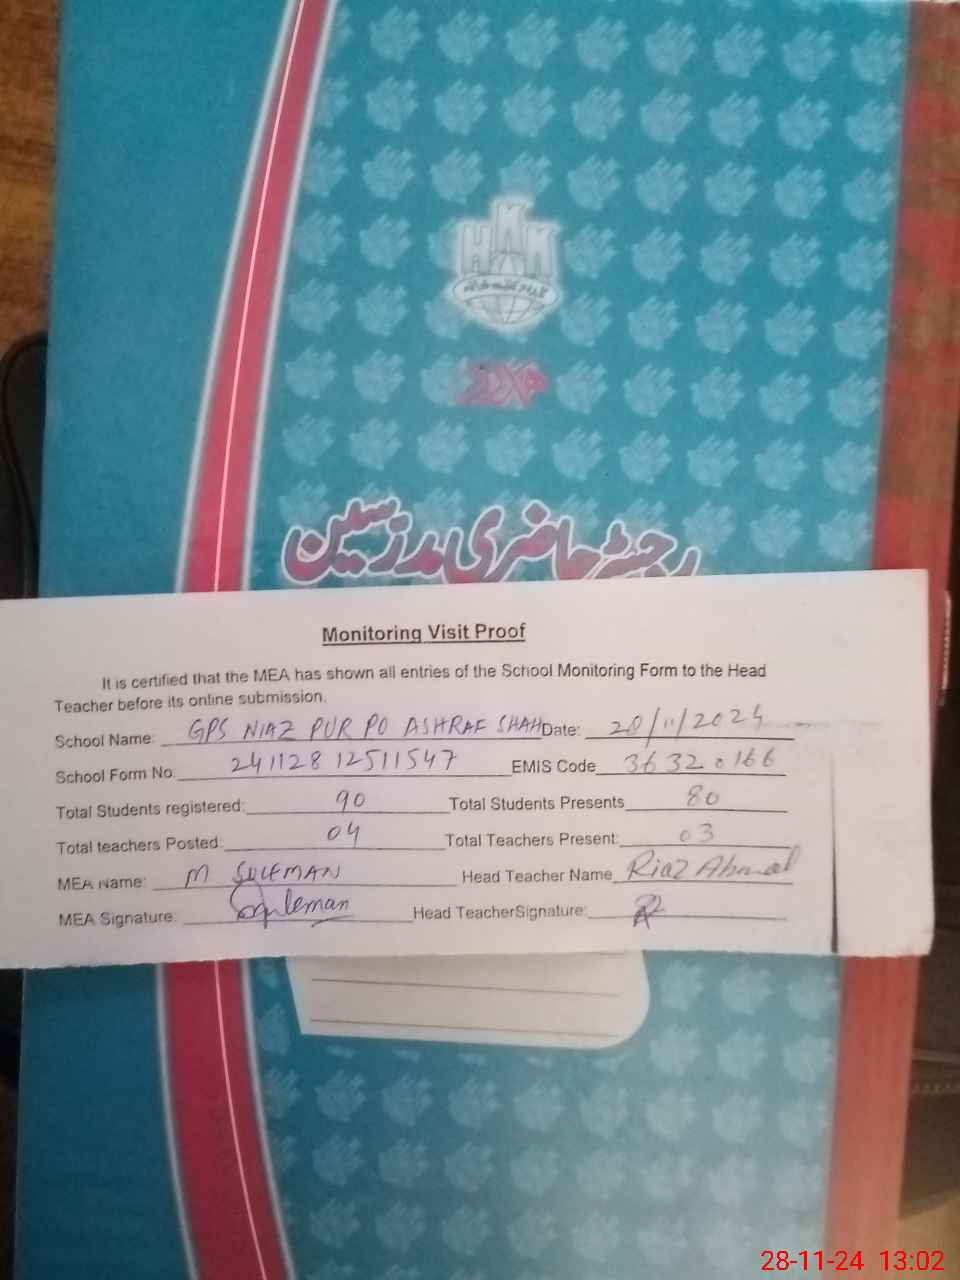 HAM
رجسٹر حاضری مدرسین
Monitoring Visit Proof
It is certified that the MEA has shown all entries of the School Monitoring Form to the Head
Teacher before its online submission.
School Name: GPS NIAZ PUR PO ASHRAF SHAH Date: 28/11/2024
School Form No: 24112812511547 EMIS Code 36320166
Total Students registered: 90 Total Students Presents 80
Total teachers Posted: 04 Total Teachers Present: 03
MEA Name: M SULEMAN Head Teacher Name Riaz Ahmad
MEA Signature: Suleman Head TeacherSignature:
28-11-24 13:02